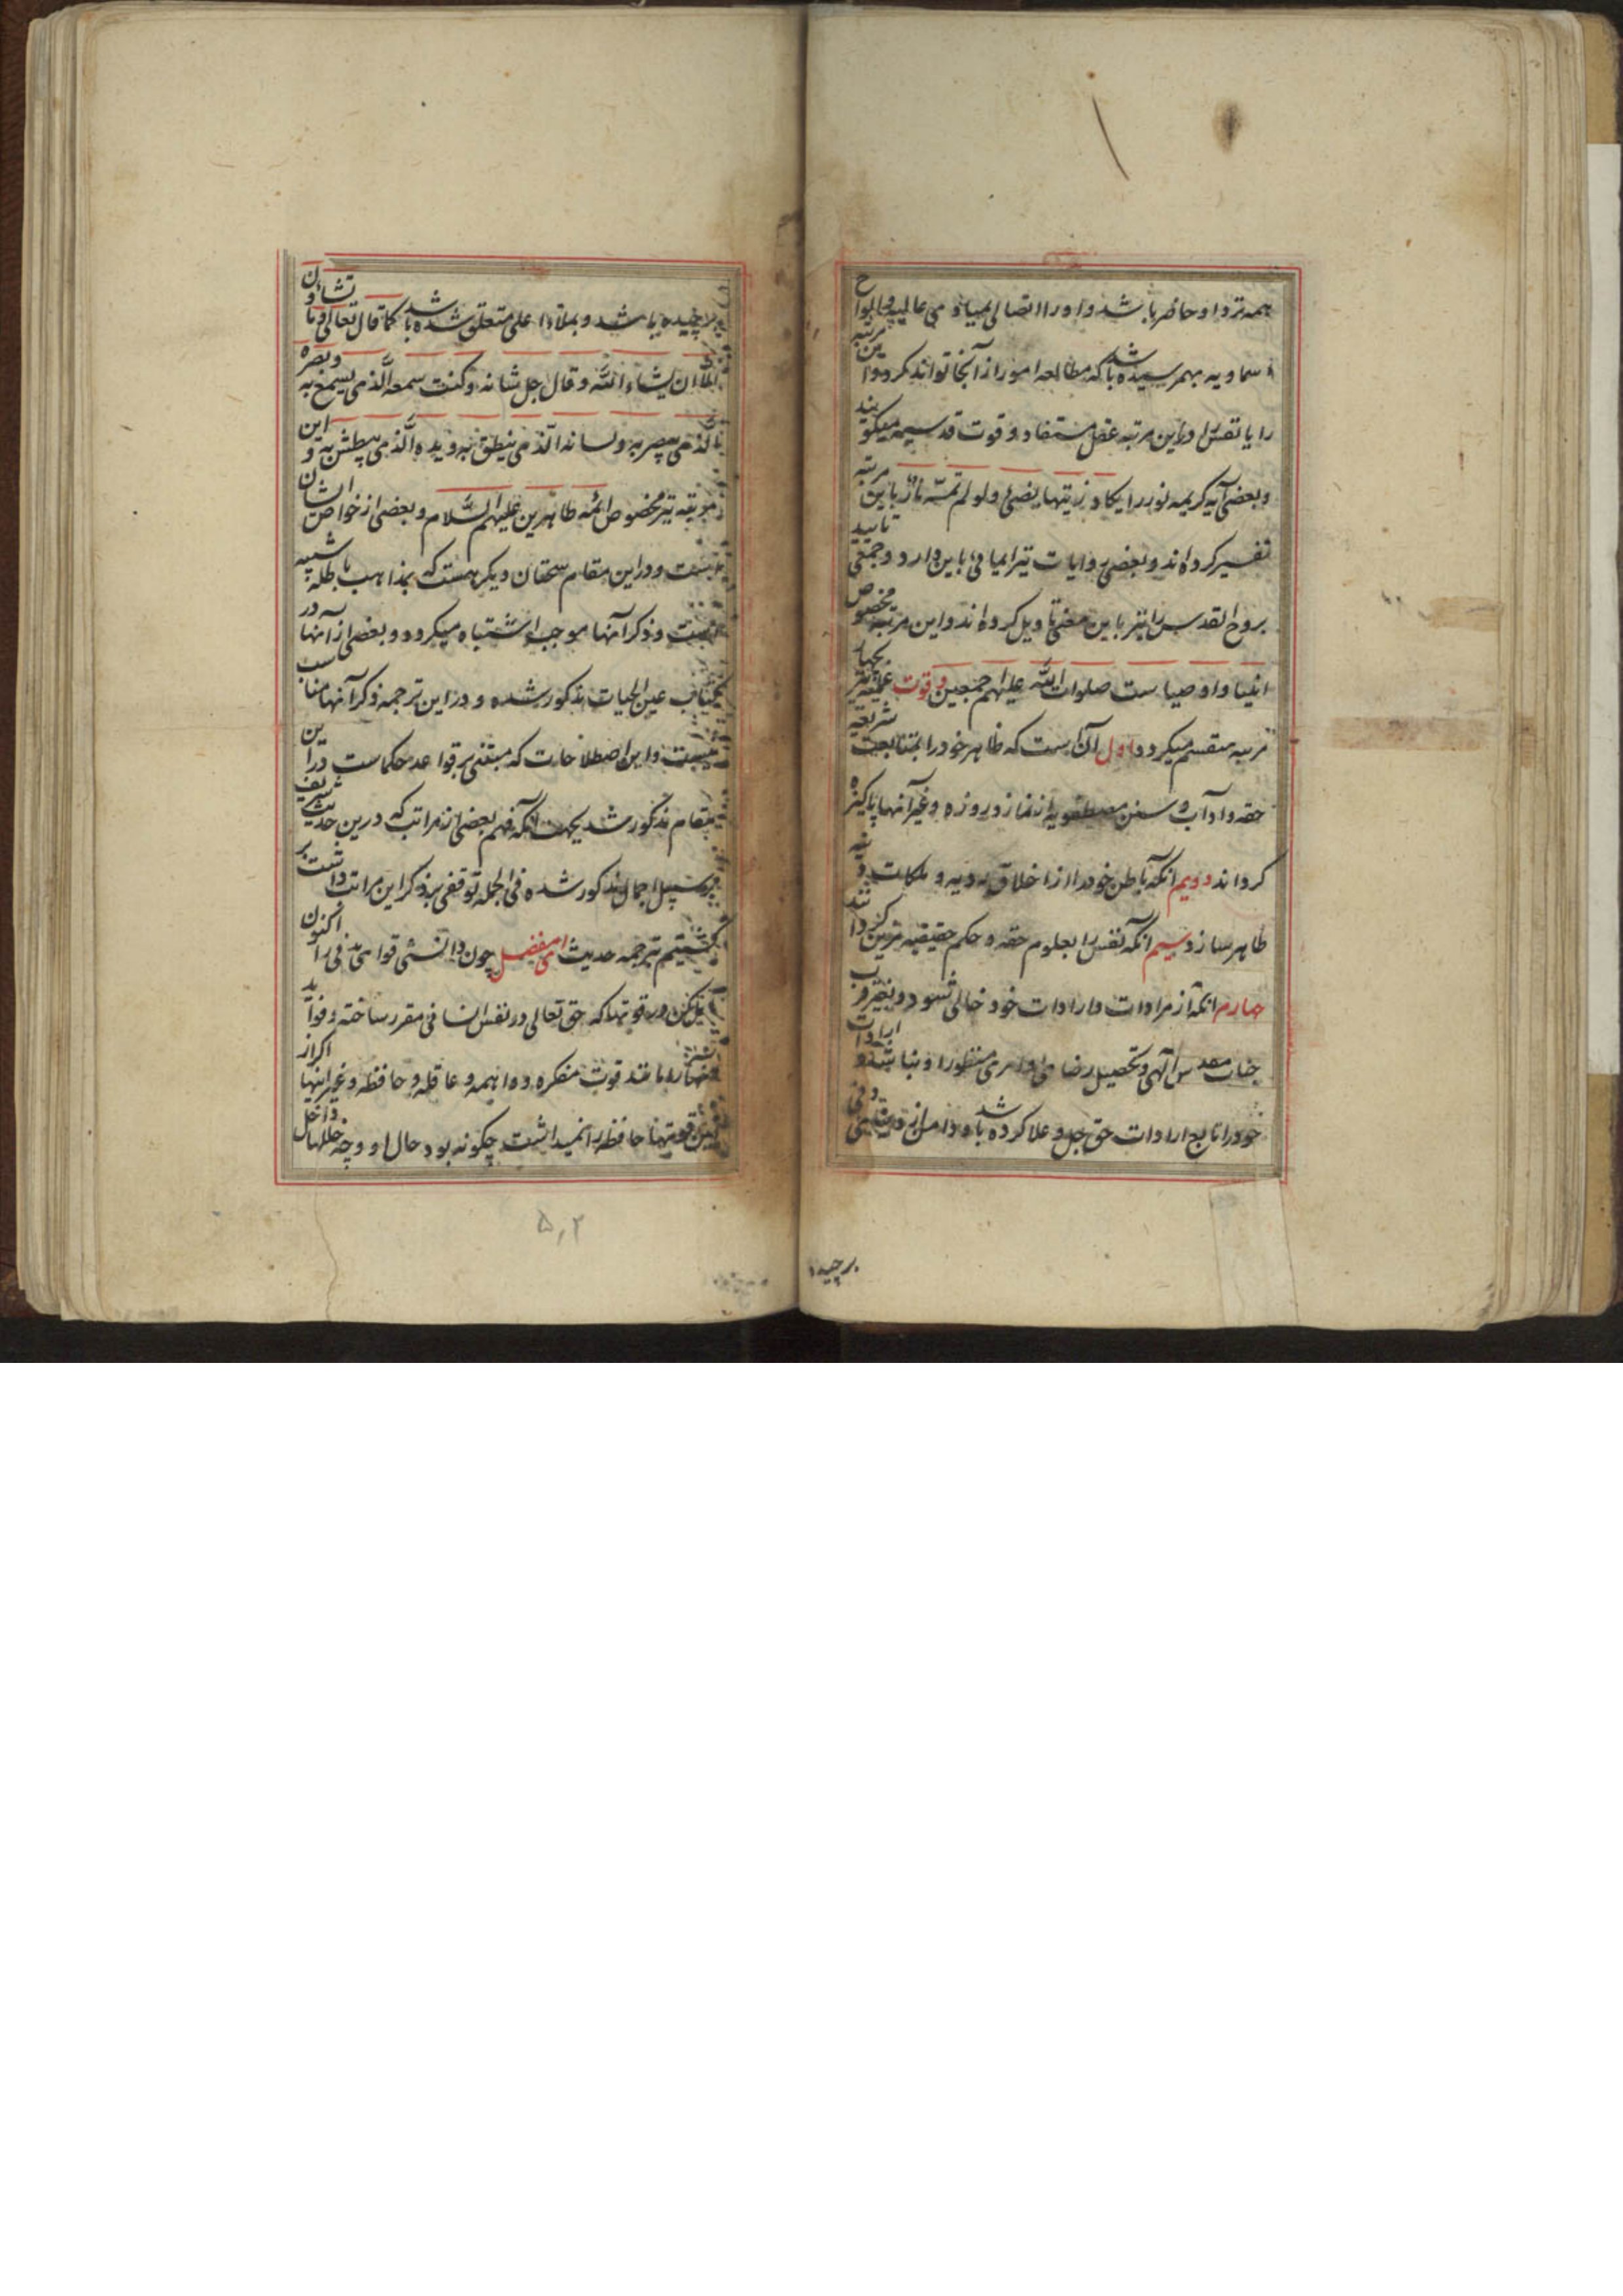 همه نزد او حاضر باشد و او را اتصالی بمبادی عالیه و الواح
سماویه بهمرسیده باشد که مطالعه امور از آنجا تواند کرد و این مرتبه
را یا نفس را در این مرتبه عقل مستفاد و قوت قدسیه میگویند
و بعضی آیه کریمه نور را یکاد زیتها یضیئ و لو لم تمسه نار باین مرتبه
تفسیر کرده اند و بعضی روایات نیز ایمائی باین دارد و جمعی تایید
بروح القدس را نیز باین معنی تاویل کرده اند و این مرتبه مخصوص
انبیا و اوصیاست صلوات الله علیهم اجمعین و قوت عملیه نیز بچهار
مرتبه منقسم میگردد اول آن است که ظاهر خود را بمتابعت شریعه
حقه و آداب و سنن مصطفویه از نماز و روزه و غیر آنها پاکیزه
گرداند دویم آنکه باطن خود را از اخلاق ردیه و ملکات دنیه
طاهر سازد سیم آنکه نفس را بعلوم حقه و حکم حقیقیه مزین گرداند
چهارم آنکه از مرادات و ارادات خود خالی شود و بغیر قرب
جناب مقدس الهی و تحصیل رضای او امری منظور او نباشد و ارادات
خود را تابع ارادات حق جل و علا کرده باشد و دامن از
برچیده
برچیده باشد و بملاء اعلی متعلق شده باشد کما قال تعالی و ما تشاؤن
الا ان یشاء الله و قال جل شانه و کنت سمعه الذی یسمع به و بصره
الذی یبصر به و لسانه الذی ینطق به و یده الذی یبطش به و این
مرتبه نیز مخصوص ائمه طاهرین علیهم السلام و بعضی از خواص ایشان
است و در این مقام سخنان دیگر هست که بمذاهب باطله شبیه
است و ذکر آنها موجب اشتباه میگردد و بعضی از آنها در
کتاب عین الحیات مذکور شده و در این ترجمه ذکر آنها مناسب
نیست و این اصطلاحات که مبتنی بر قواعد حکماست در این
مقام مذکور شد بجهت آنکه فهم بعضی از مراتب که درین حدیث شریف
بر سبیل اجمال مذکور شده فی الجمله توقفی بر ذکر این مراتب داشت بر
گشتیم بترجمه حدیث ای مفضل چون دانستی قوای بدنی را اکنون
تامل کن در قوتها که حق تعالی در نفس انسانی مقرر ساخته و فواید
آنها را مانند قوت متفکره و واهمه و عاقله و حافظه و غیر اینها اگر از
این قوتها حافظه را نمیداشت چگونه بود حال او و چه خللها داخل
۵۰۲